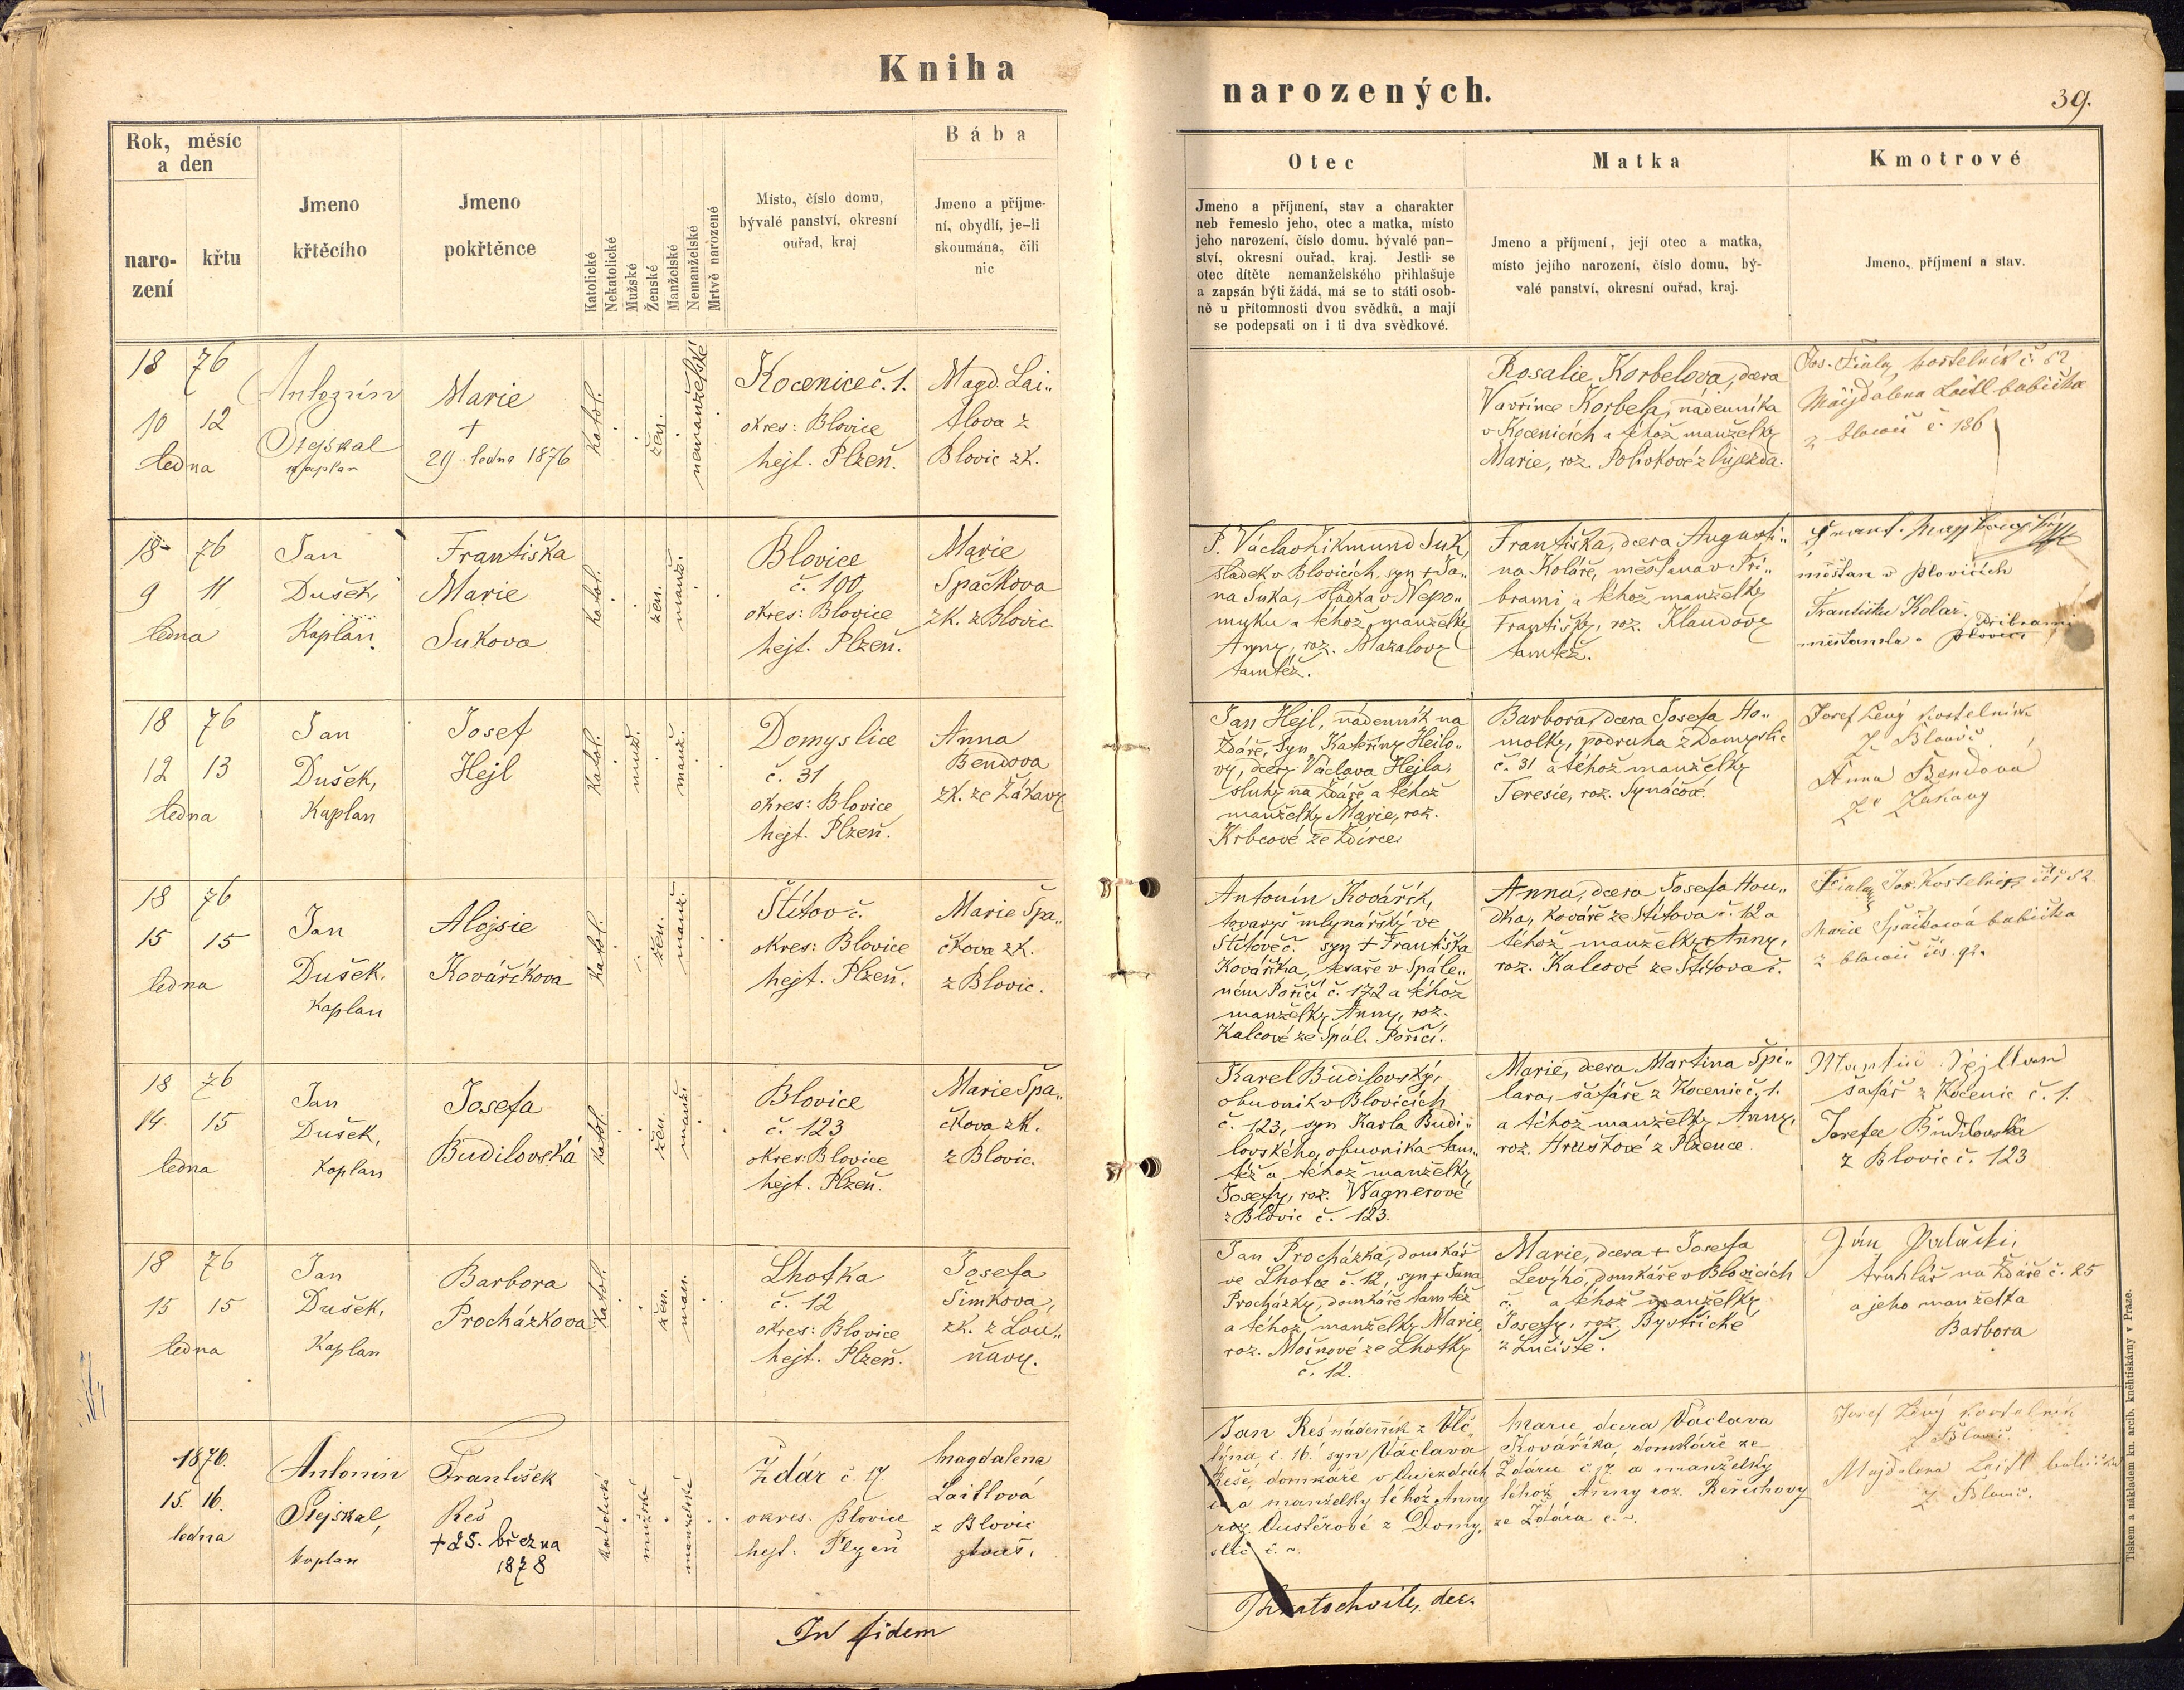 Kniha
narozených.
39.
Rok, měsíc
a den
naro-
zení
křtu
Jmeno
křtěcího
Jmeno
pokřtěnce
Katolické
Nekatolické
Mužské
Ženské
Manželské
Nemanželské
Mrtvě narozené
Místo, číslo domu,
bývalé panství, okresní
ouřad, kraj
Bába
Jmeno a příjme-
ní, obydlí, je-li
skoumána, čili
nic
Otec
Jmeno a příjmení, stav a charakter
neb řemeslo jeho, otec a matka, místo
jeho narození, číslo domu, bývalé pan-
ství, okresní ouřad, kraj. Jestli se
otec dítěte nemanželského přihlašuje
a zapsán býti žádá, má se to státi osob-
ně u přítomnosti dvou svědků, a mají
se podepsati on i ti dva svědkové.
Matka
Jmeno a příjmení, její otec a matka,
místo jejího narození, číslo domu, bý-
valé panství, okresní ouřad, kraj.
Kmotrové
Jmeno, příjmení a stav.
18 76
10 12
ledna
Antonín
Stejskal
kaplan
Marie
+
29. ledna 1876
katol.
žen.
nemanželské
Kocenice č. 1.
okres: Blovice
hejt. Plzeň.
Magd. Lai„
tlova z
Blovic zk.
Rosalie Korbelova, dcera
Vavřince Korbela, nádenníka
v Kocenicích a téhož manželky
Marie, roz. Polívkové z Oujezda.
Jos. Fiala, kostelník č. 82
Majdalena Laitl babička
z Blovic č 136
18 76
9 11
ledna
Jan
Dušek,
Kaplan.
Františka
Marie
Sukova
katol.
žen.
manž.
Blovice
č. 100
okres: Blovice
hejt. Plzeň.
Marie
Spačkova
zk. z Blovic
P. Václav Zikmund Suk,
sládek v Blovicích, syn + Ja„
na Suka, sládka v Nepo„
muku a téhož manželky
Anny, roz. Mazalovy
tamtéž.
Františka, dcera Augusti„
na Koláře, měšťana v Pří„
brami a téhož manželky
Františky, roz. Klaudovy
tamtéž.
měšťan v Blovicích
Františka Kolař,
Příbrami
měšťanka v Blovici
18 76
12 13
ledna
Jan
Dušek,
Kaplan
Josef
Hejl
katol.
muž.
manž.
Domyslice
č. 31
okres: Blovice
hejt. Plzeň.
Anna
Bendova
zk. ze Žákavy
Jan Hejl, nádenník na
Ždáře, syn Kateřiny Hejlo„
vy, dcery Václava Hejla,
sluhy na Ždáře a téhož
manželky Marie, roz.
Krbcové ze Ždírce
Barbora, dcera Josefa Ho„
molky, podruha z Domyslic
č. 31 a téhož manželky
Teresie, roz. Synáčové.
Josef Levý kostelník
z Blovic
Anna Bendová
ze Žákavy
18 76
15 15
ledna
Jan
Dušek,
Kaplan
Alojsie
Kovaříkova
katol.
žen.
manž.
Štítov č.
okres: Blovice
hejt. Plzeň.
Marie Špa„
čkova zk.
z Blovic.
Antonín Kovářík,
tovaryš mlynářský ve
Štítově č. syn + Františka
Kováříka, tesaře v Spále„
ném Poříčí č. 172 a téhož
manželky Anny, roz.
Kalcové ze Spál. Poříčí.
Anna, dcera Josefa Hou„
dka, kováře ze Štítova č. 12 a
téhož manželky + Anny,
roz. Kalcové ze Štítova č.
Fiala Jos. Kostelník čís 82.
Marie Špačková babička
z Blovic čís. 92.
18 76
14 15
ledna
Jan
Dušek,
Kaplan
Josefa
Budilovská
katol.
žen.
manž.
Blovice
č. 123
okres: Blovice
hejt. Plzeň.
Marie Špa„
čkova zk.
z Blovic.
Karel Budilovský,
obuvník v Blovicích
č. 123, syn Karla Budi„
lovského, obuvníka tam„
též a téhož manželky
Josefy, roz. Wagnerové
z Blovic č. 123.
Marie, dcera Martina Špi„
lara, šafáře z Kocenic č. 1.
a téhož manželky Anny,
roz. Hruškové z Plzence
Martin
šafář z Kocenic č. 1.
Josefa Budilovská
z Blovic č. 123
18 76
15 15
ledna
Jan
Dušek,
Kaplan
Barbora
Procházkova
katol.
žen.
man.
Lhotka
č. 12
okres: Blovice
hejt. Plzeň.
Josefa
Šimkova,
zk. z Lou„
ňavy.
Jan Procházka, domkář
ve Lhotce č. 12, syn + Jana
Procházky, domkáře tamtéž
a téhož manželky Marie,
roz. Mošnové ze Lhotky
č. 12.
Marie, dcera + Josefa
Levýho, domkáře v Blovicích
č. a téhož manželky
Josefy, roz. Bystřické
z Lučiště.
Ján
truhlář na Ždáře č. 25
a jeho manželka
Barbora
1876.
15. 16.
ledna
Antonín
Stejskal,
kaplan
František
Reš
+ 25. března
1878
katolické
mužské
manželské
Ždár č. 17.
okres. Blovice
hejt. Plzeň
Magdalena
Laitlová
z Blovic
zkouš.
Jan Reš nádenník z Vlč„
týna č. 16 syn Václava
Reše, domkáře v Oujezdcích
a manželky téhož Anny
roz. Oustěrové z Domy„
slic č. ~.
Marie dcera Václava
Kováříka, domkáře ze
Ždáru č. 17. a manželky
téhož Anny roz. Řeřichovy
ze Ždára č. ~.
Josef Levý kostelník
z Blovic.
Majdalena Laitl babička
z Blovic.
In fidem
Kratochvile, dec.
Tiskem a nákladem kn. arcib. kněhtiskárny v Praze.